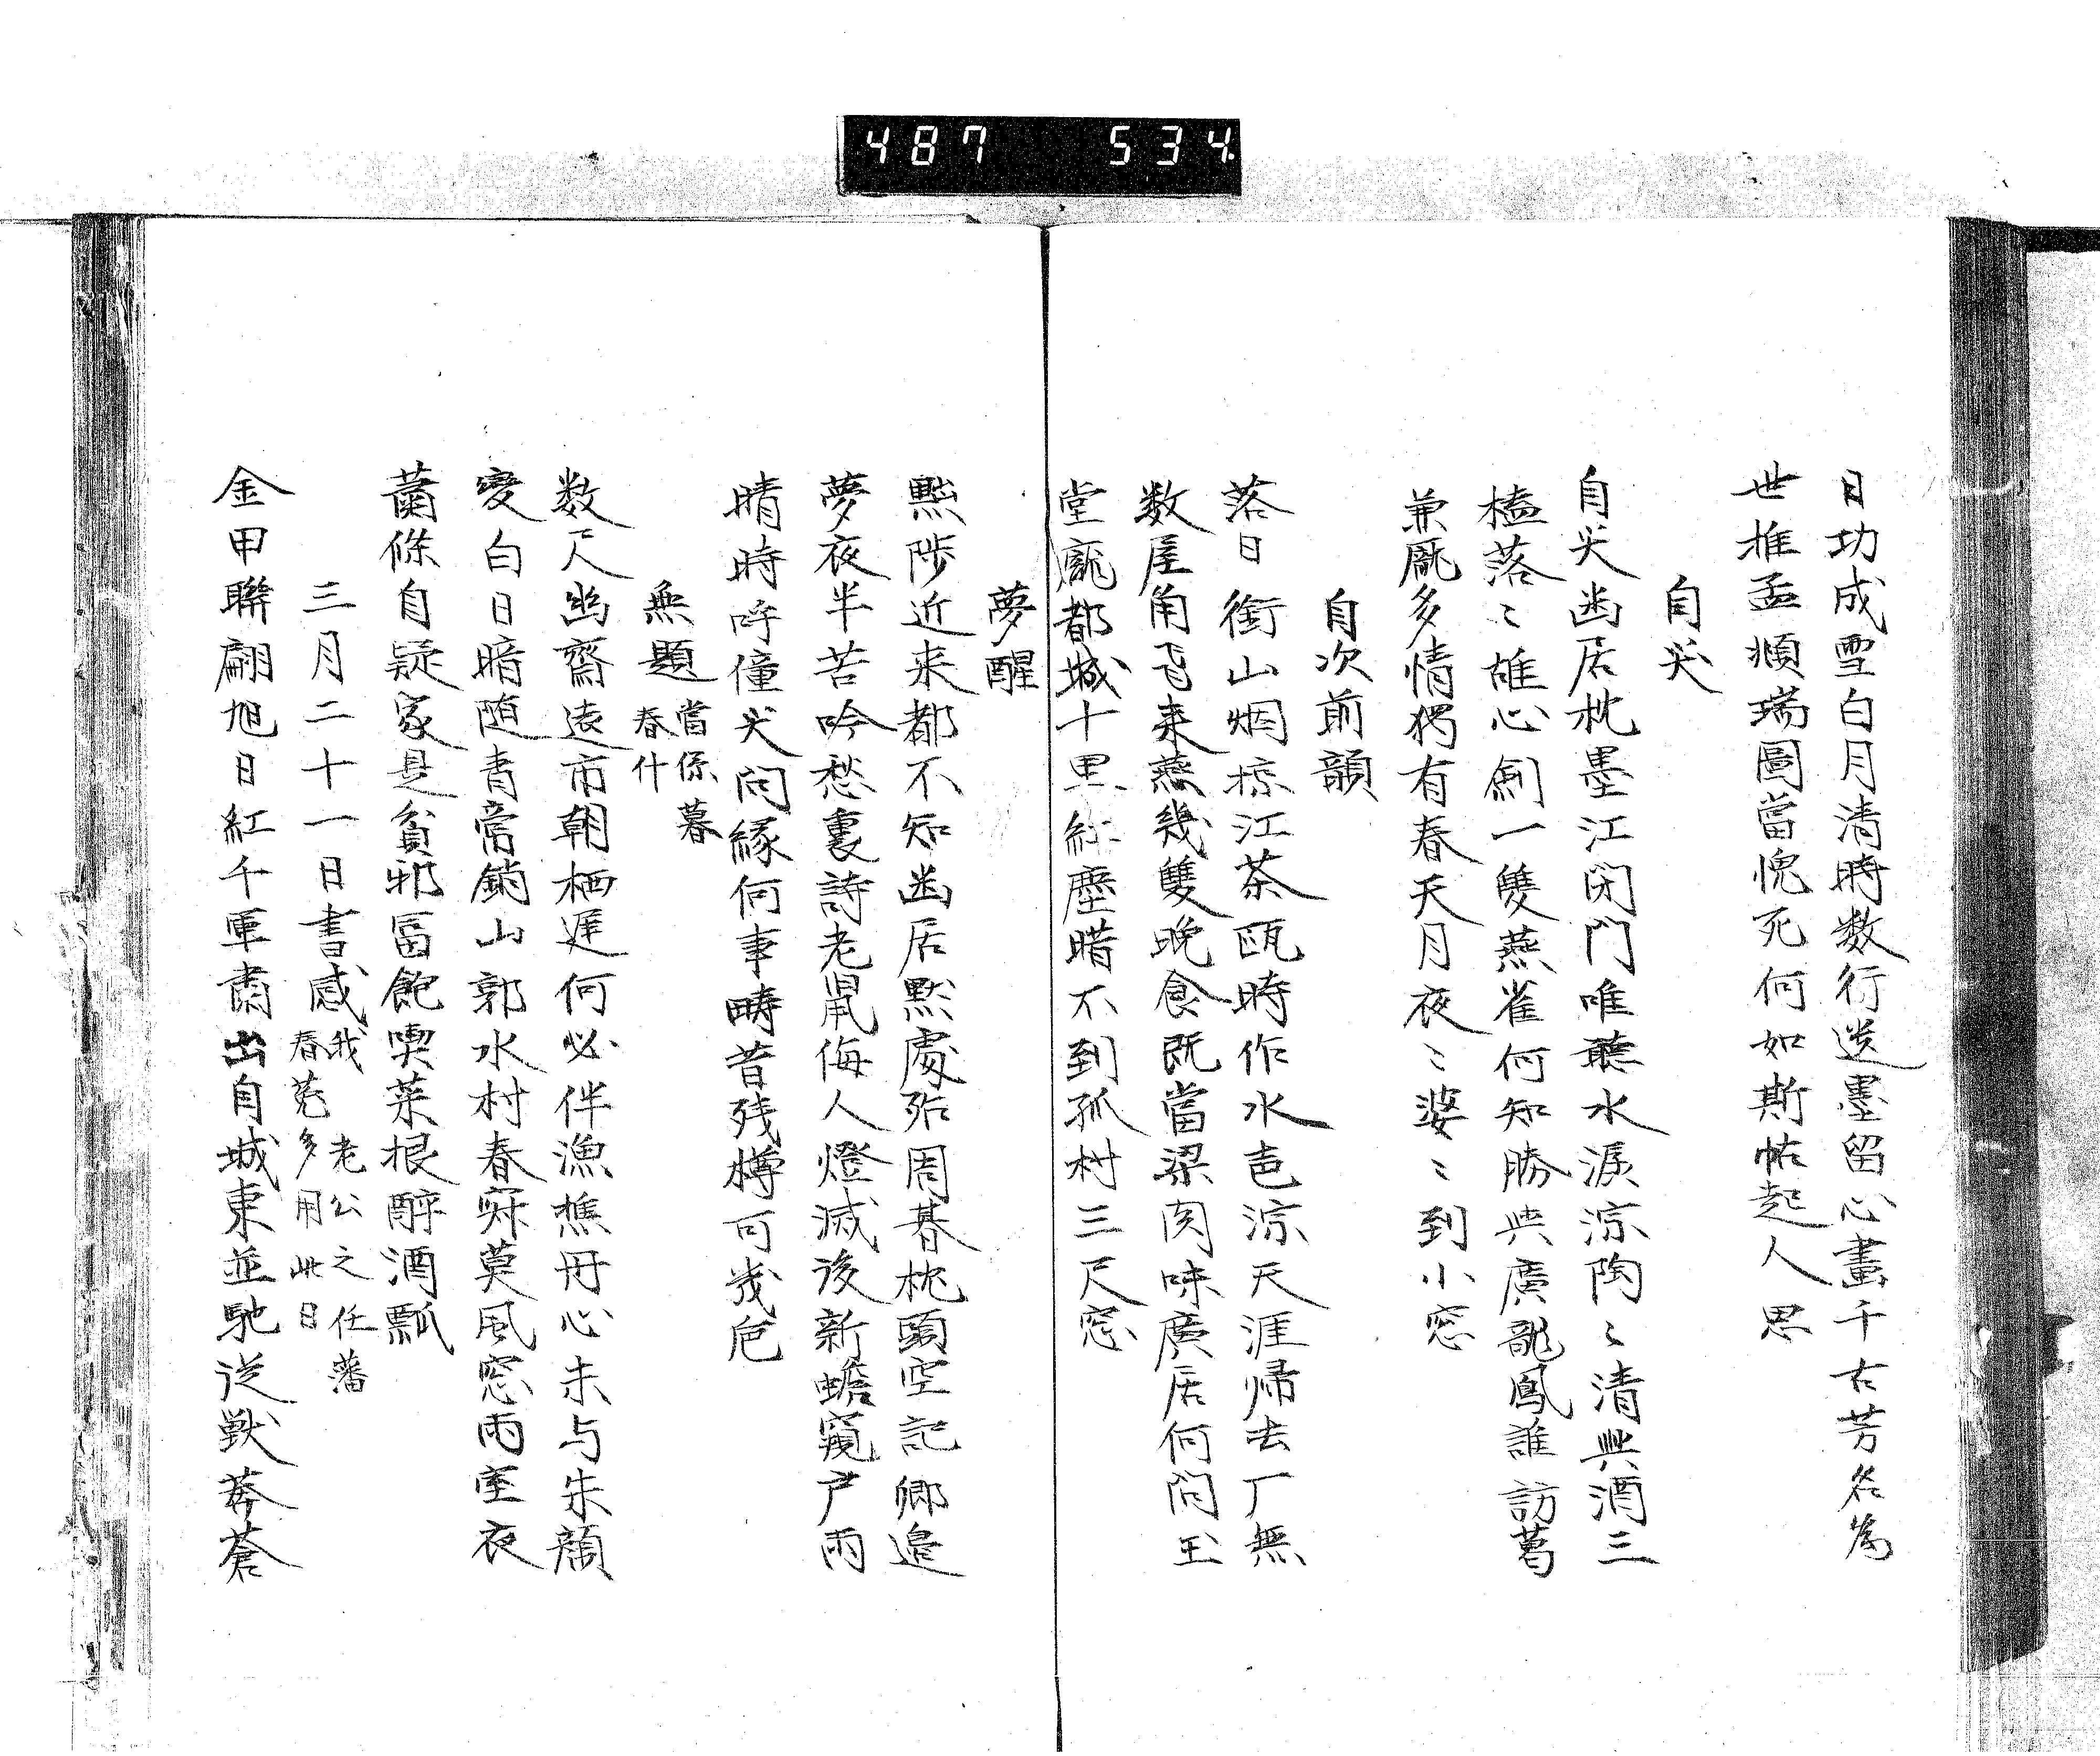 487 534
日功成雪白月清時数行遺墨留心畫千古芳名為
世推孟頫瑞圖當愧死何如斯帖起人思
自笑
自笑幽居枕墨江閉門唯聽水淙淙陶〻清興酒三
榼落〻雄心劍一雙燕雀何知勝與廣龍鳳誰訪葛
兼厖多情独有春天月夜〻婆〻到小窓
自次前韻
落日銜山烟掠江茶甌時作水声淙天涯帰去厂無
数屋角飞来燕幾雙晚食既當梁肉味廣居何問玉
堂龐都城十里紅塵暗不到孤村三尺窓
夢醒
黙陟近来都不知幽居黙處殆周朞枕頭空記鄉邊
夢夜半苦吟愁裏詩老鼠侮人燈滅後新蟾窺戸雨
晴時呼僮笑問緣何事疇昔残樽可幾卮
無題 當係暮
春什
数尺幽齋遠市朝栖遲何必伴漁樵丹心未与朱顔
變白日暗随青帝銷山郭水村春寂莫風窓雨室夜
蕭條自疑家是貧邪富飽喫菜根醉酒瓢
三月二十一日書感 我 老公之任藩
春蒐多用此日
金甲聯翩旭日紅千軍肅出自城東並馳従獣莽蒼